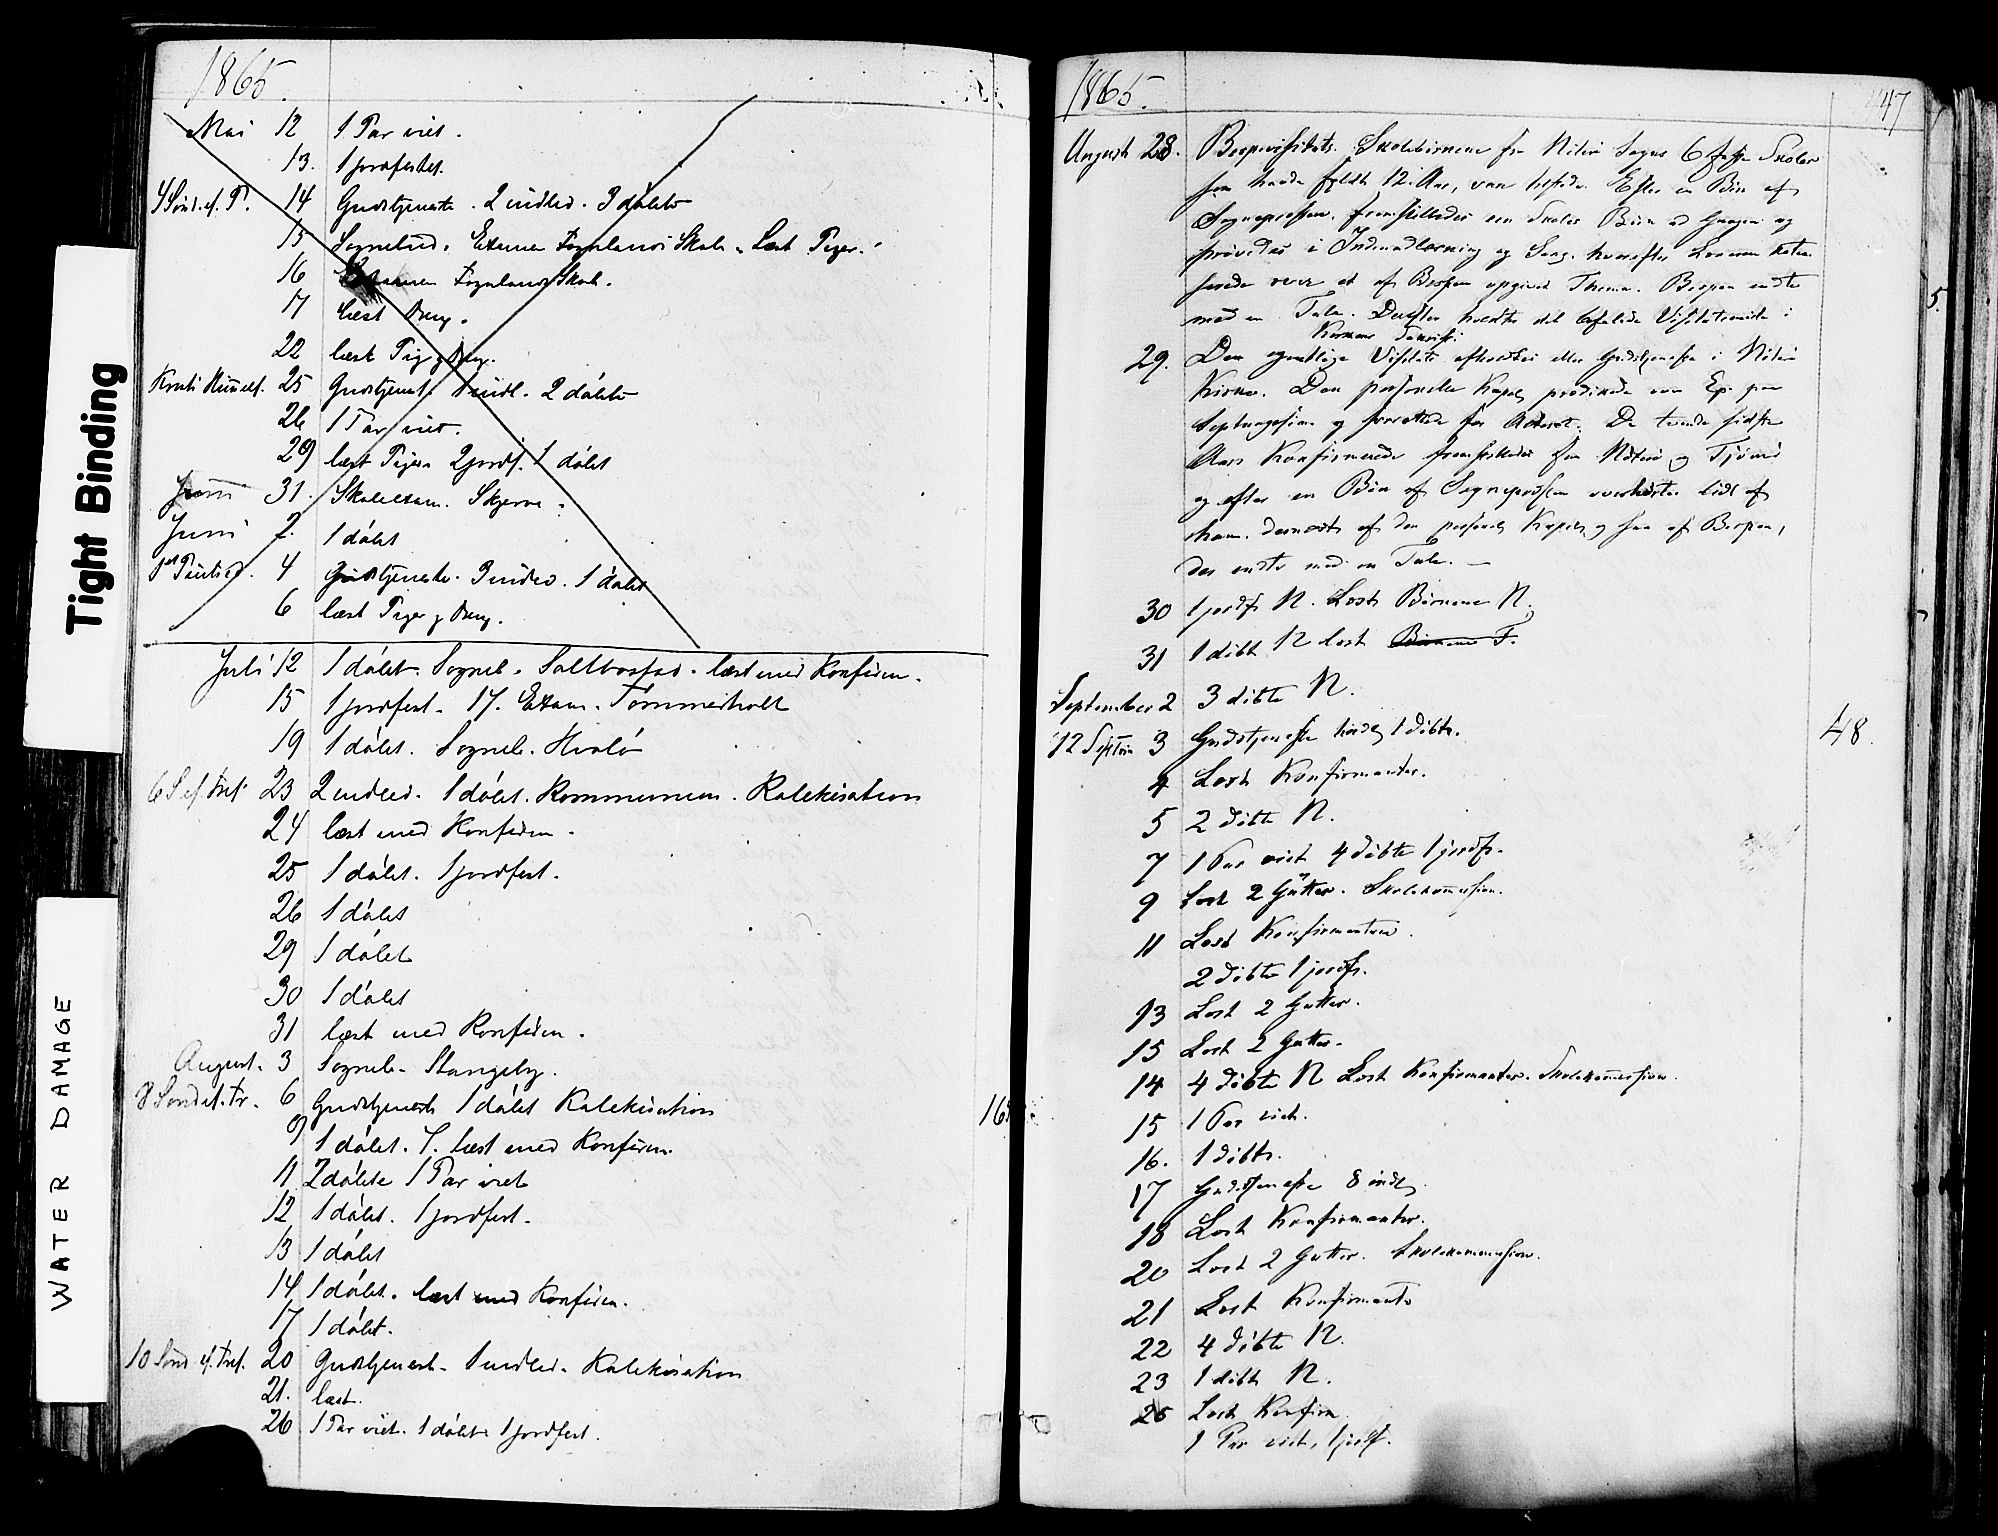 Tight Binding
WATER DAMAGE
1865.
Mai 12 1 Par viet.
13. 1 jordfestet.
4 Sønd. ef. P. 14 Gudstjeneste. 2 indled. 3 døbte
15 Sognebud. Examen Fognland Skole. Læst Piger.
16 Examen Fognland Skole.
17 læst Dreng.
22 læst Pig og Dreng.
Kristi Himmelf. 25 Gudstjenest. 1 indl. 2 døbte
26 1 Par viet.
29 læst Piger. 2 jordf. 1 døbt
31. Skoleexam. Skjerve.
Juni 2. 1 døbt
1ste Pintsed. 4 Gudstjeneste. 3 indled. 1 døbt
6 læst Piger og Dreng.
Juli 12 1 døbt. Sogneb. Saltbostad. læst med Konfirm.
15 1 jordfest. 17. Exam. Tømmerholt
19 1 døbt. Sogneb. Hvalø
6 S. ef. Tref. 23 2 indled. 1 døbt. Kommunion. Katekisation
24 læst med Konfirm.
25 1 døbt. 1 jordfest.
26 1 døbt
29 1 døbt
30 1 døbt
31 læst med Konfirm.
August. 3 Sogneb. Stangeby.
8 Sønd. ef. Tr. 6 Gudstjenest 1 døbt Katekisation
9 1 døbt. læst med Konfirm.
11 2 døbte 1 Par viet
12 1 døbt. 1 jordfest.
13 1 døbt
14 1 døbt. læst med Konfirm.
17 1 døbt.
10 Sønd ef. Tref. 20 Gudstjenest. 1 indled. Katekisation
21. læst.
26 1 Par viet. 1 døbt. 1 jordfest.
1865. 447
August 28. Bispevisitats. Skolebørnene fra Nøterø Sogns 6 faste Skoler
som havde fyldt 12. Aar, var tilstede. Efter en Bøn af
Sognepresten, fremstilledes een Skoles Børn ad Gangen og
prøvedes i Indenadlæsning og Sang, hvorefter Læreren kate-
serede over et af Bispen opgivet Thema. Bispen endte
med en Tale. Derefter holdtes det befalede Visitatsmøde i
29. Den egentlige Visitats afholdtes efter Gudstjeneste i Nøterø
Kirke. Den personelle Kapel. prædikede over Ep. paa
Septuagesima og forrettede for Alteret. De tvende sidste
Aars Konfirmerede fremstilledes fra Nøterø og Tjømø
og efter en Bøn af Sognepresten overhørtes lidt af
ham. dernæst af den personel. Kapel. og saa af Bispen,
der endte med en Tale. —
30 1 jordf. N. Læst Børnene N.
31 1 døbt N læst Børnene T.
September 2 3 døbte N.
12 S. e. Trin 3 Gudstjeneste 1 døbte.
4 Læst Konfirmanter.
5 2 døbte N.
7 1 Par viet 4 døbte 1 jordf.
9 Læst 2 Gutter. Skolekommission.
11 Læst Konfirmanter.
2 døbte 1 jordf.
13 Læst 2 Gutter.
15 Læst 2 Gutter.
14 4 døbte N Læst Konfirmanter. Skolekommission.
15 1 Par viet.
16. 1 døbte.
17 Gudstjeneste 8 indl.
18 Læst Konfirmanter.
20 Læst 2 Gutter. Skolekommission.
21 Læst Konfirmanter
22 4 døbte N.
23 1 døbt N.
25 Læst Konfirm
1 Par viet, 1 jordf.
48.
5.